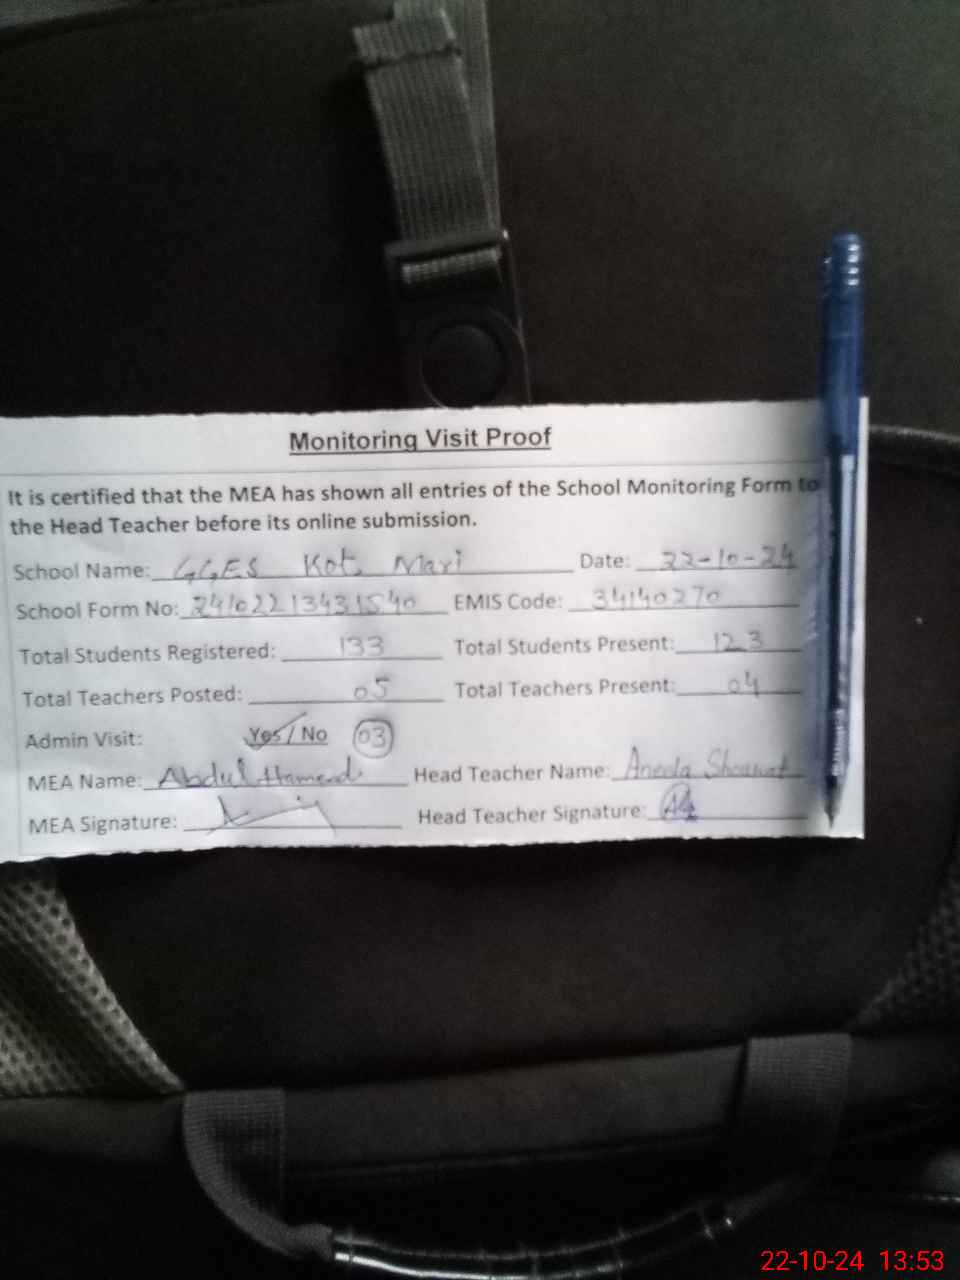 Monitoring Visit Proof
It is certified that the MEA has shown all entries of the School Monitoring Form to
the Head Teacher before its online submission.
School Name: GGES Kot Mari Date: 22-10-24
School Form No: 24102213431540 EMIS Code: 34140270
Total Students Registered: 133 Total Students Present: 123
Total Teachers Posted: 05 Total Teachers Present: 04
Admin Visit: Yes/No 03
MEA Name: Abdul Hameed Head Teacher Name: Aneela
MEA Signature: Head Teacher Signature:
22-10-24 13:53